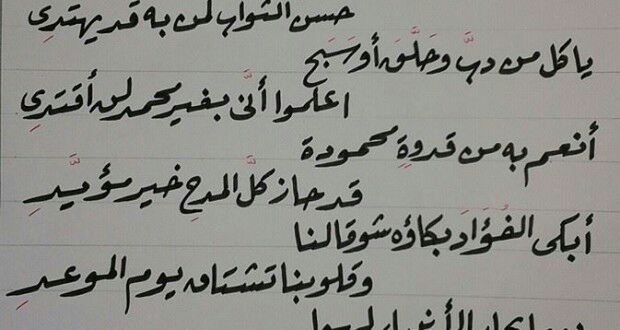 حسن الثواب لمن به قد يهتدِي
يا كل من دبَّ وحَلَّقَ أو سَبَح
اعلموا أنَّى بغير محمد لن أقتدِي
أنعم به من قدوةٍ محمودة
قد حاز كلَّ المدحِ خير مؤيَّدِ
أبكى الفُؤَادَ بكاؤه شوقا لنا
وقلوبنا تشتاق يوم الموعدِ